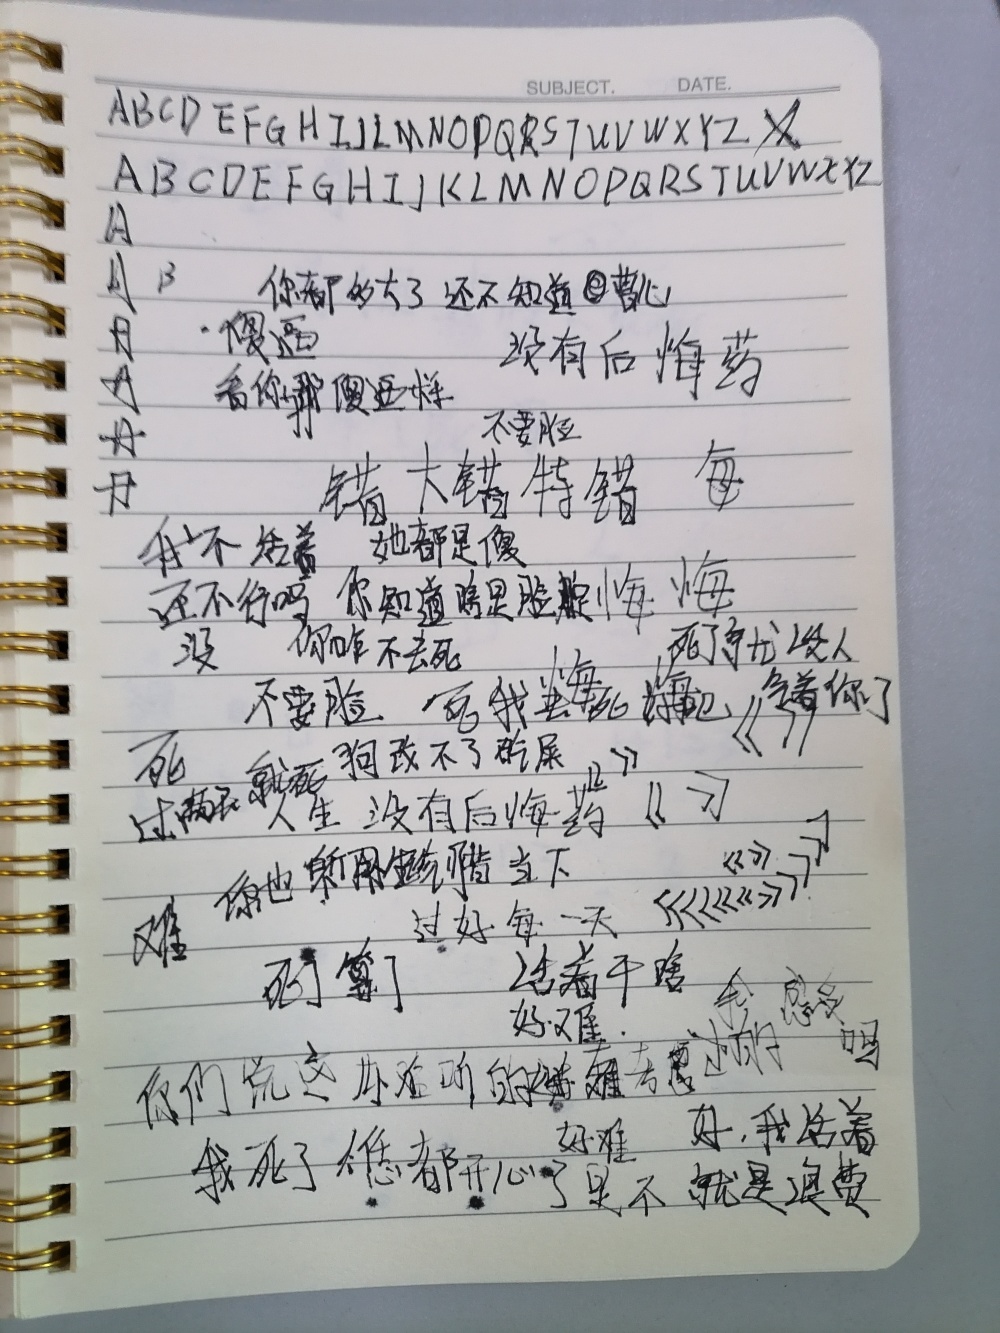 SUBJECT. DATE.
ABCDEFGHIJLMNOPQRSTUVWXYZ
ABCDEFGHIJKLMNOPQRSTUVWXYZ
A
A B 你都的大了还不知道曹心
A 傻逼 没有后悔药
A 看你那傻逼样
A 不要脸
A 错 大错特错 每
我不活着 她都是傻
还不行吗 你知道啥是脸 悔 悔
没 你咋不去死 死了就没人
不要脸 死我 悔 死 悔 吃着你了
死 就死 狗改不了吃屎
过两天 人生没有后悔药
你也 当下
难 过好每一天
死了算了 活着干啥
好难. 我 感受
你们说这 的 难 考虑过的 吗
好难 好,我活着
我死了 您都开心了是不 就是浪费